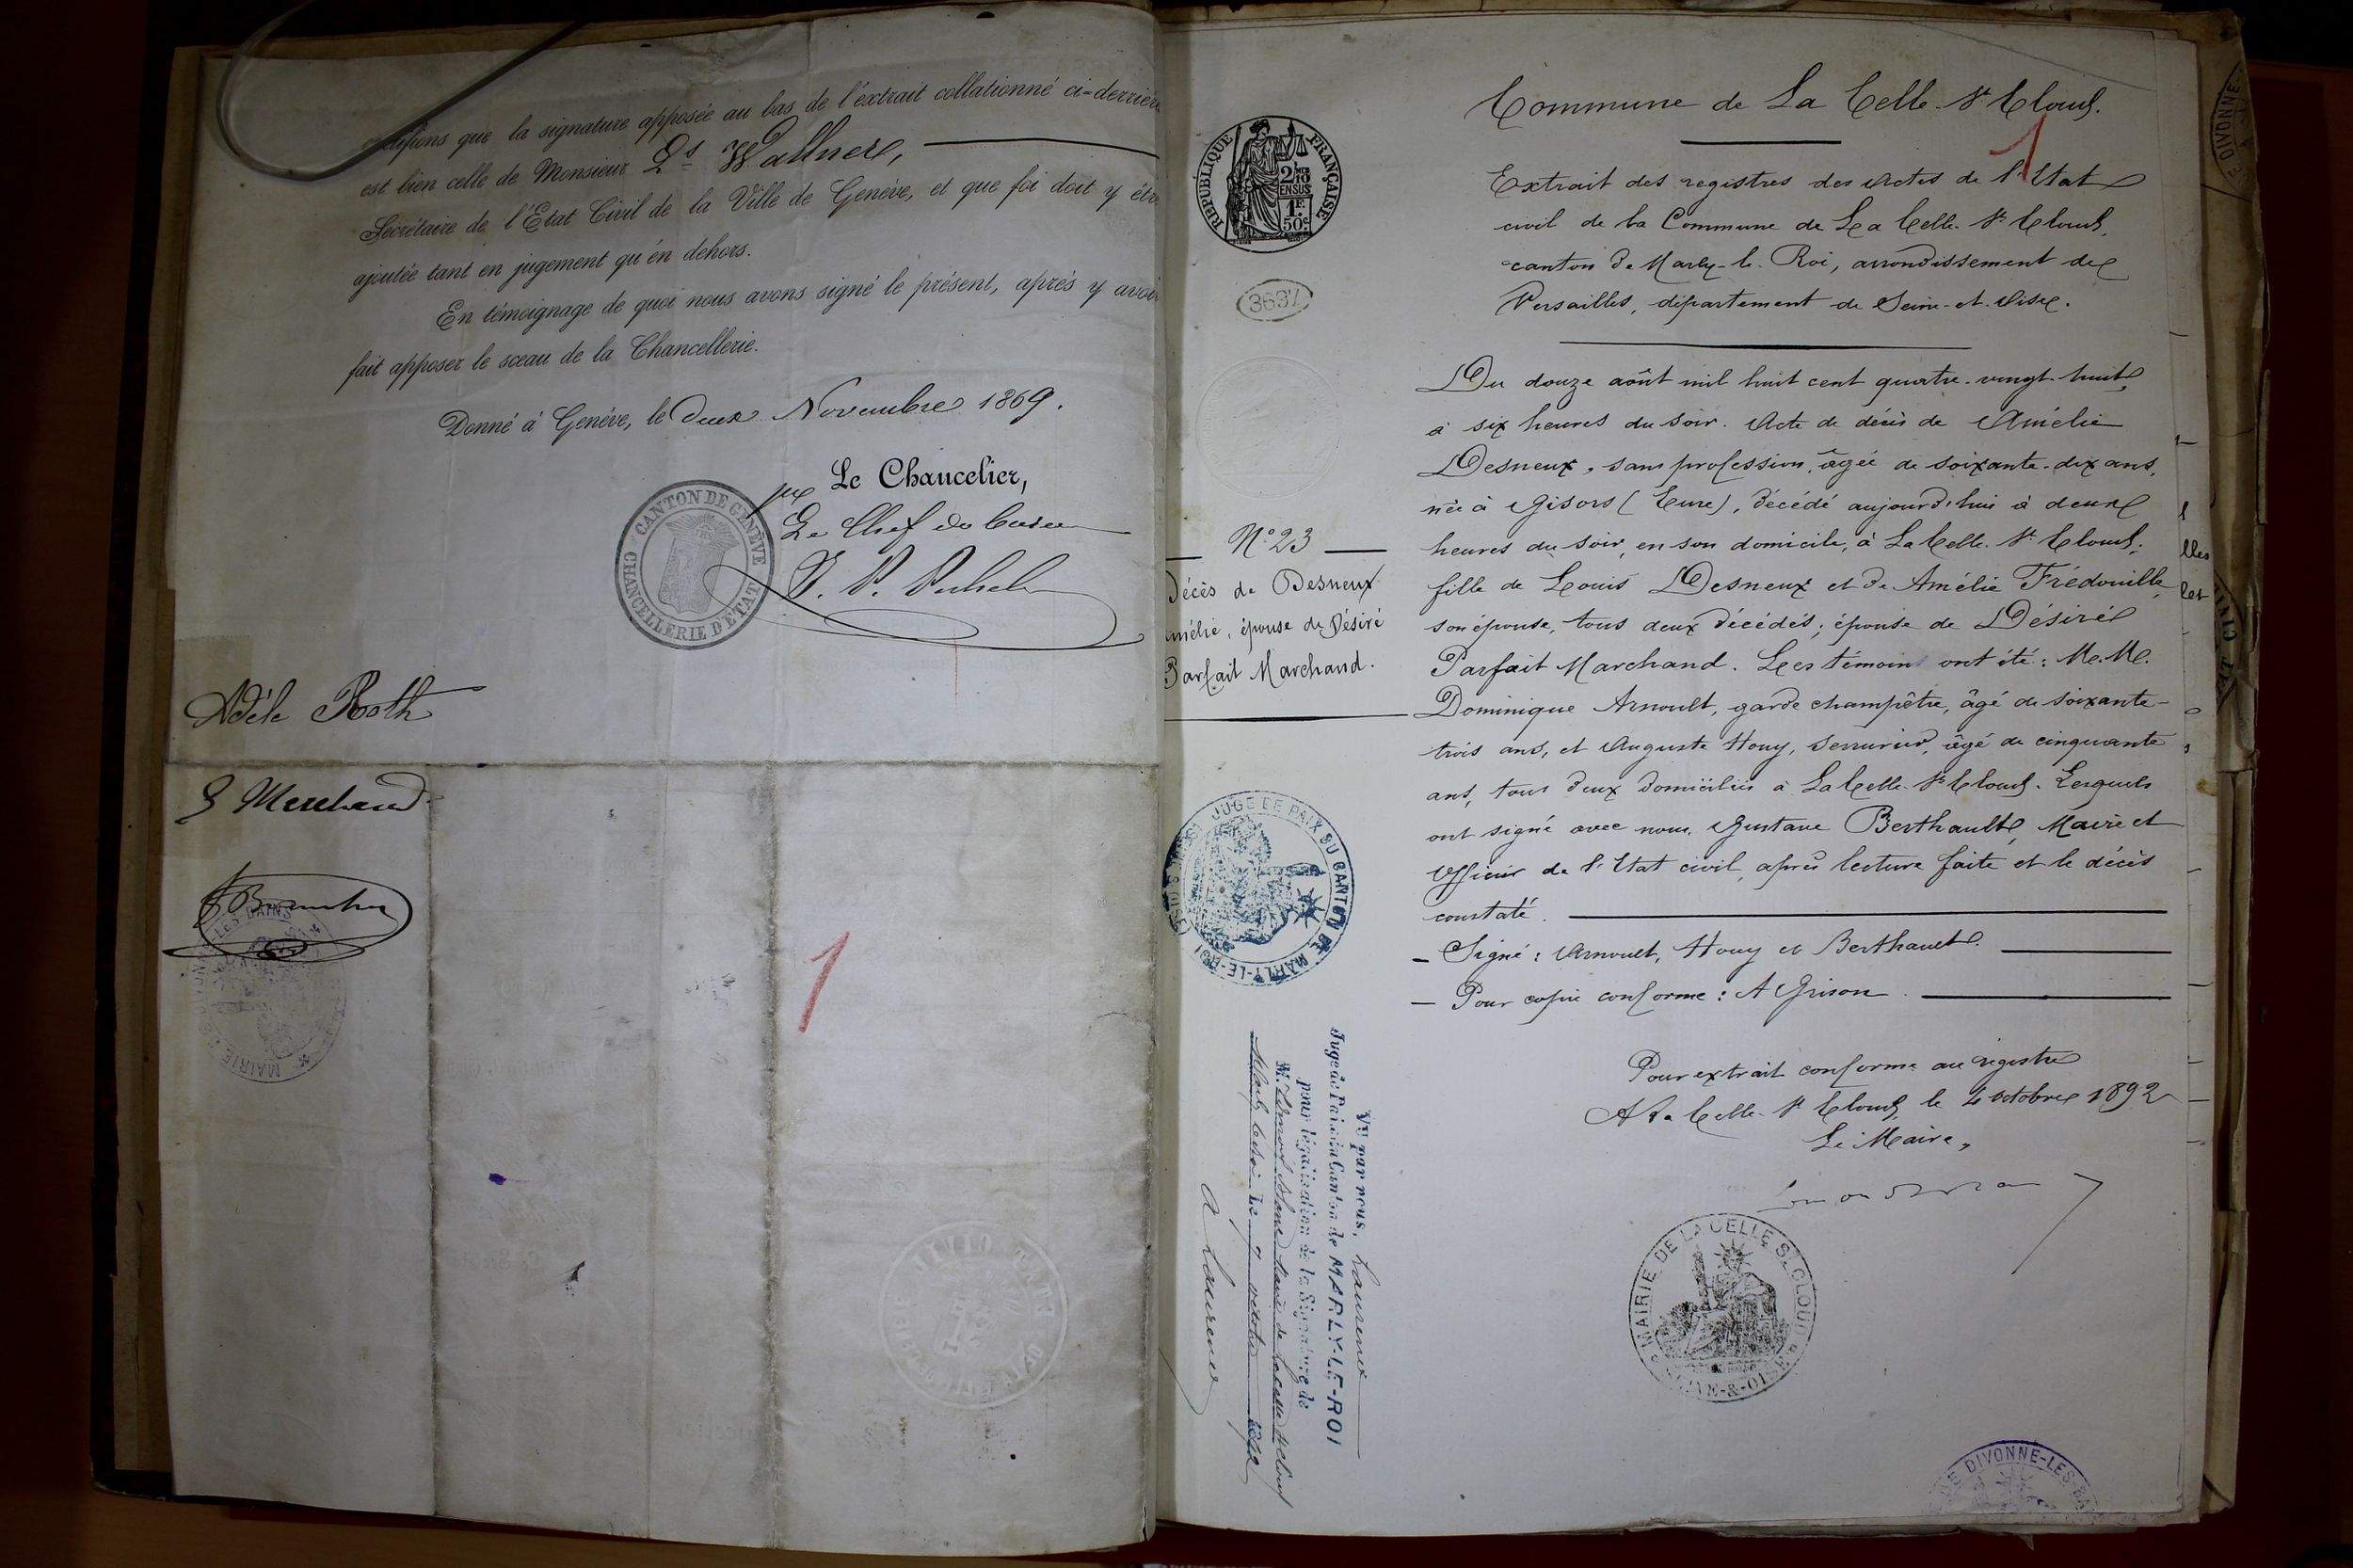 que la signature apposée au bas de l'éxtrait collationné ci=derrière
est bien celle de Monsieur Ls Wallner,
Secrétaire de l'Etat Civil de la Ville de Genève, et que foi doit y être
ajoutée tant en jugement qu'en dehors.
En témoignage de quoi nous avons signé le présent, après y avoir
fait apposer le sceau de la Chancellerie.
Donné à Genève, le deux Novembre 1869.
Le Chancelier,
Le Chef de bureau
CANTON DE GENÈVE
CHANCELLERIE D'ETAT
Adèle Roth
1
RÉPUBLIQUE FRANÇAISE
2/10 EN SUS
1F.
50c
3637
N° 23
Décès de Desneux
Amélie, épouse de Désiré
Parfait Marchand.
JUGE DE PAIX DU CANTON DE MARLY-LE-ROI
Vu par nous, Laurend
Juge de Paix du Canton de MARLY-LE-ROI
pour légalisation de la Signature de
Commune de La Celle St Cloud.
1
Extrait des registres des Actes de l'Etat
civil de la Commune de La Celle St Cloud,
canton de Marly-le-Roi, arrondissement de
Versailles, département de Seine-et-Oise.
Du douze août mil huit cent quatre-vingt-huit,
à six heures du soir. Acte de décès de Amélie
Desneux, sans profession, âgée de soixante-dix ans,
née à Gisors (Eure), décédé aujourd'hui à deux
heures du soir, en son domicile, à La Celle St Cloud;
fille de Louis Desneux et de Amélie Frédouille,
son épouse, tous deux décédés; épouse de Désiré
Parfait Marchand. Les témoins ont été: M.M.
Dominique Arnoult, garde champêtre, âgé de soixante-
trois ans, et Auguste Houy, serrurier, âgé de cinquante
ans, tous deux domiciliés à La Celle St Cloud. Lesquels
ont signé avec nous, Gustave Berthault, Maire et
Officier de l'Etat civil, après lecture faite et le décès
constaté.
Signé: Arnoult, Houy et Berthault.
Pour copie conforme: A Grison
Pour extrait conforme au registre
A La Celle St Cloud, le 4 octobre 1892
Le Maire,
MAIRIE DE LA CELLE ST CLOUD
DIVONNE-LES-BA